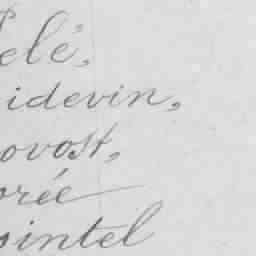 Pelé,
idevin,
ovost,
orée
ointel